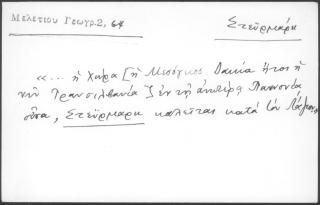 Μελετίου Γεωγρ. 2, 64
Στεϋρμάρκ
«... ἡ Χώρα [ἡ Μεσόγειος Δακία ἤτοι ἡ
νῦν Τρανσιλβανία] ἐν τῇ ἀνωτέρᾳ Παννονίᾳ
οὖσα, Στεϋρμαρκ καλεῖται κατὰ τὸν Λάζιον,»